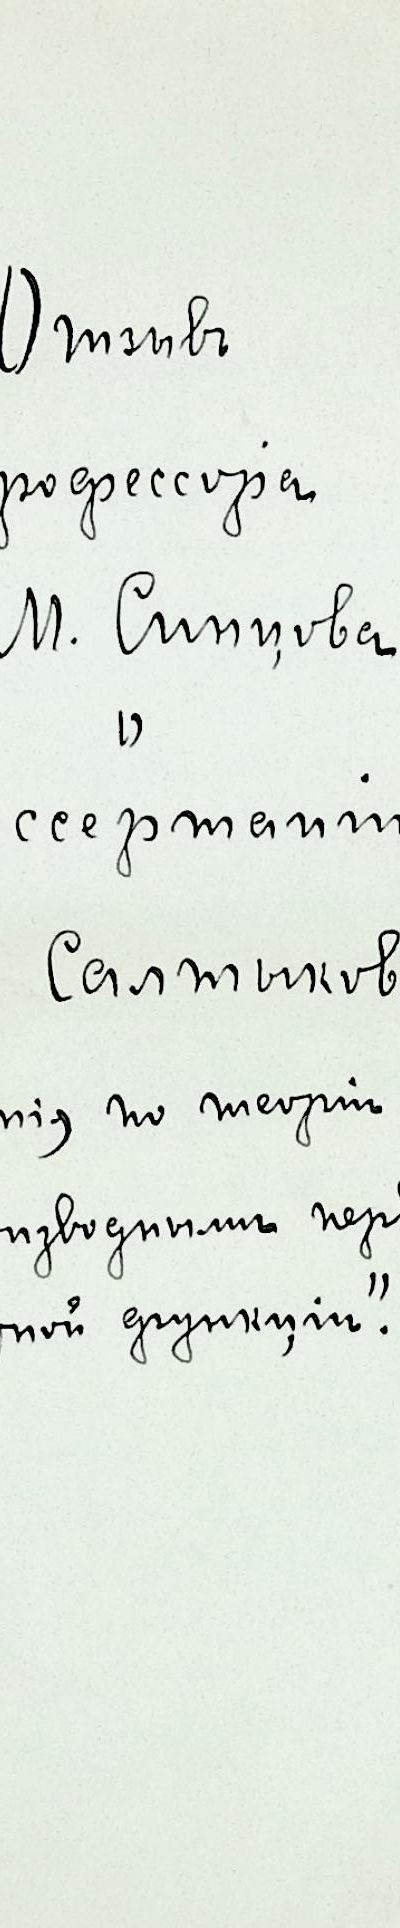 Отзывъ
рофессора
М. Синцова
о
ссертаціи
Салтыков
нія по теоріи
изводными пер
ной функціи".